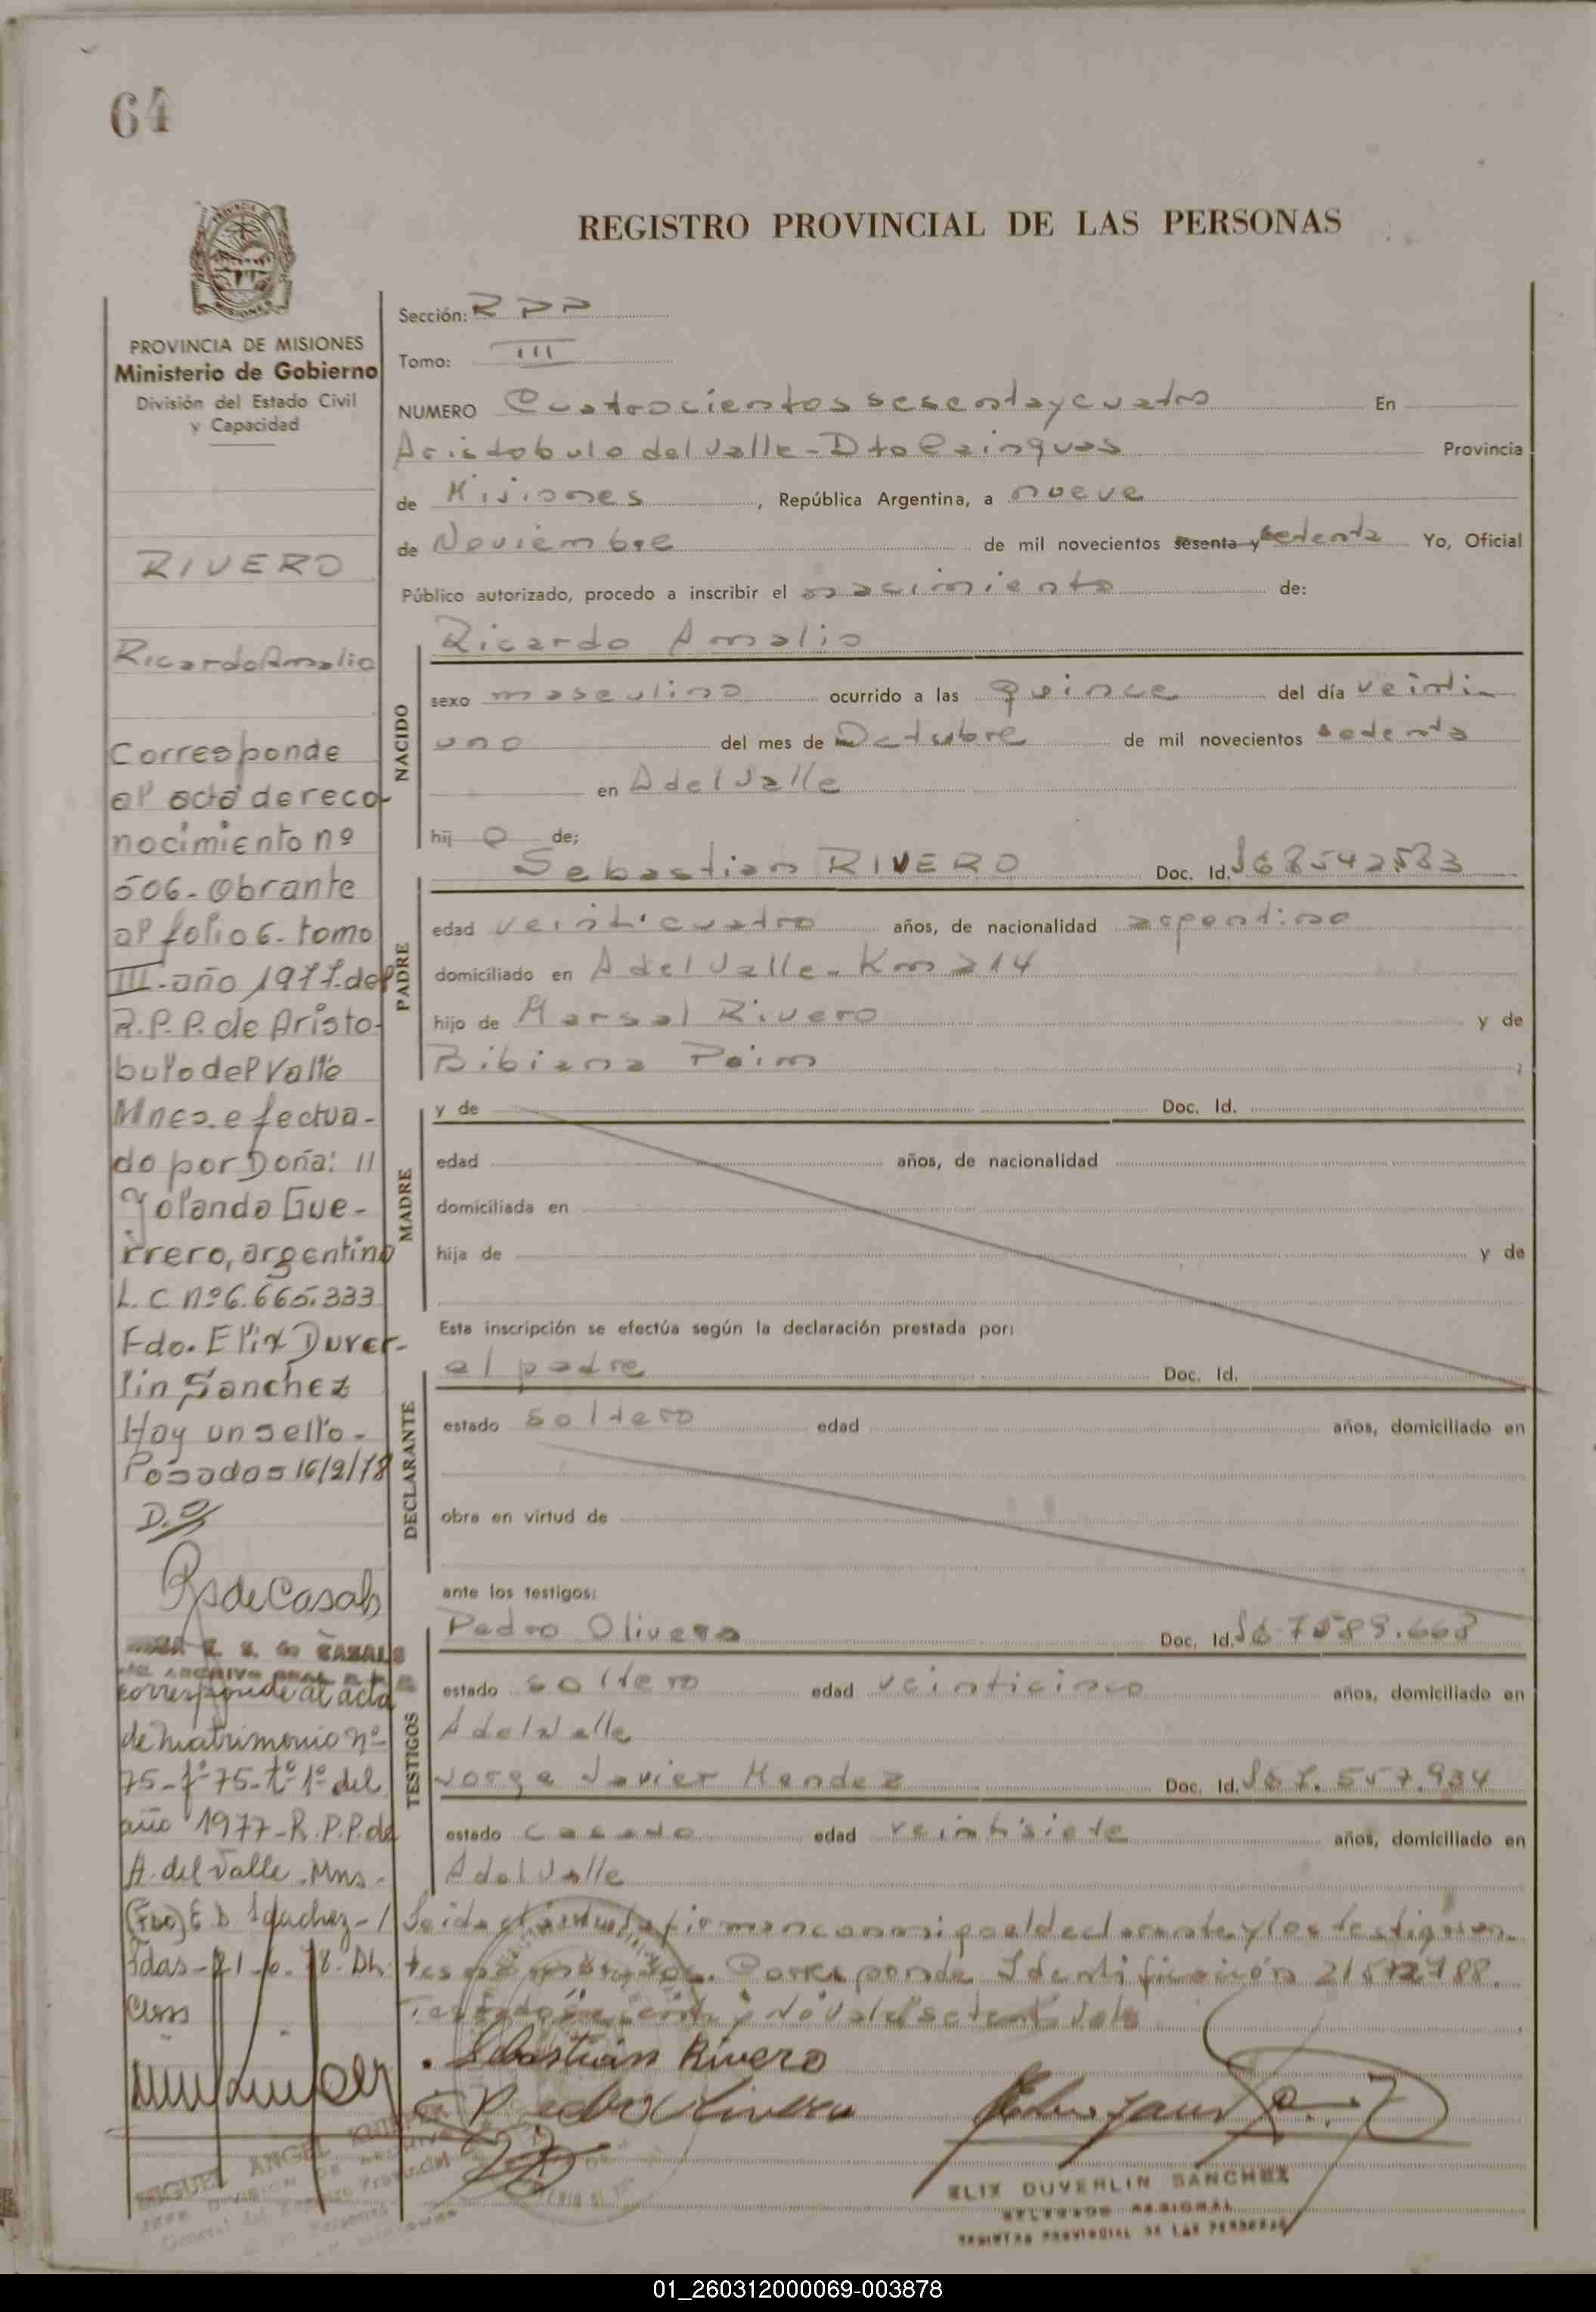 64
REGISTRO PROVINCIAL DE LAS PERSONAS
PROVINCIA DE MISIONES
Ministerio de Gobierno
División del Estado Civil
y Capacidad
RIVERO
Ricardo Amalio
Corresponde
al acta de reco-
nocimiento nº
506- Obrante
al folio 6- tomo
III-año 1977-del
R.P.P. de Aristo-
bulo del Valle
Mnes. efectua-
do por Doña: //
Yolanda Gue-
rrero, argentina
L.C nº 6.665.333
Fdo. Elix Duver-
lin Sanchez
Hay un sello-
Posadas 16/2/78
corresponde al acta
de Matrimonio nº
75-fº 75-tº 1º del
año 1977-R.P.P. de
A. del Valle. Mns-
(Fdo) E D Sanchez-/
Sección: RPP
Tomo: III
NUMERO Cuatrocientos sesenta y cuatro En
Aristobulo del Valle - Dto Cainguas Provincia
de Misiones, República Argentina, a nueve
de Noviembre de mil novecientos sesenta y setenta Yo, Oficial
Público autorizado, procedo a inscribir el nacimiento de:
NACIDO
Ricardo Amalio
sexo masculino ocurrido a las quince del día veinti
uno del mes de Octubre de mil novecientos setenta
en A del Valle
hij o de;
PADRE
Sebastian RIVERO Doc. Id.
edad veinticuatro años, de nacionalidad argentino
domiciliado en A del Valle - Km 214
hijo de Marsal Rivero y de
Bibiana Paim ;
MADRE
y de Doc. Id.
edad años, de nacionalidad
domiciliada en
hija de y de
Esta inscripción se efectúa según la declaración prestada por:
DECLARANTE
el padre Doc. Id.
estado soltero edad años, domiciliado en
obra en virtud de
ante los testigos:
TESTIGOS
Pedro Olivera Doc. Id. 7589.663
estado soltero edad veinticinco años, domiciliado en
A del Valle
Jorge Javier Mendez Doc. Id. 557.934
estado casado edad veintisiete años, domiciliado en
A del Valle
Leida el acta la firman conmigo el declarante y los testigos an-
tes nombrados. Corresponde Identificación
Sebastián Rivero
ELIX DUVERLIN SANCHEZ
DELEGADO REGIONAL
REGISTRO PROVINCIAL DE LAS PERSONAS
MIGUEL ANGEL
01_260312000069-003878